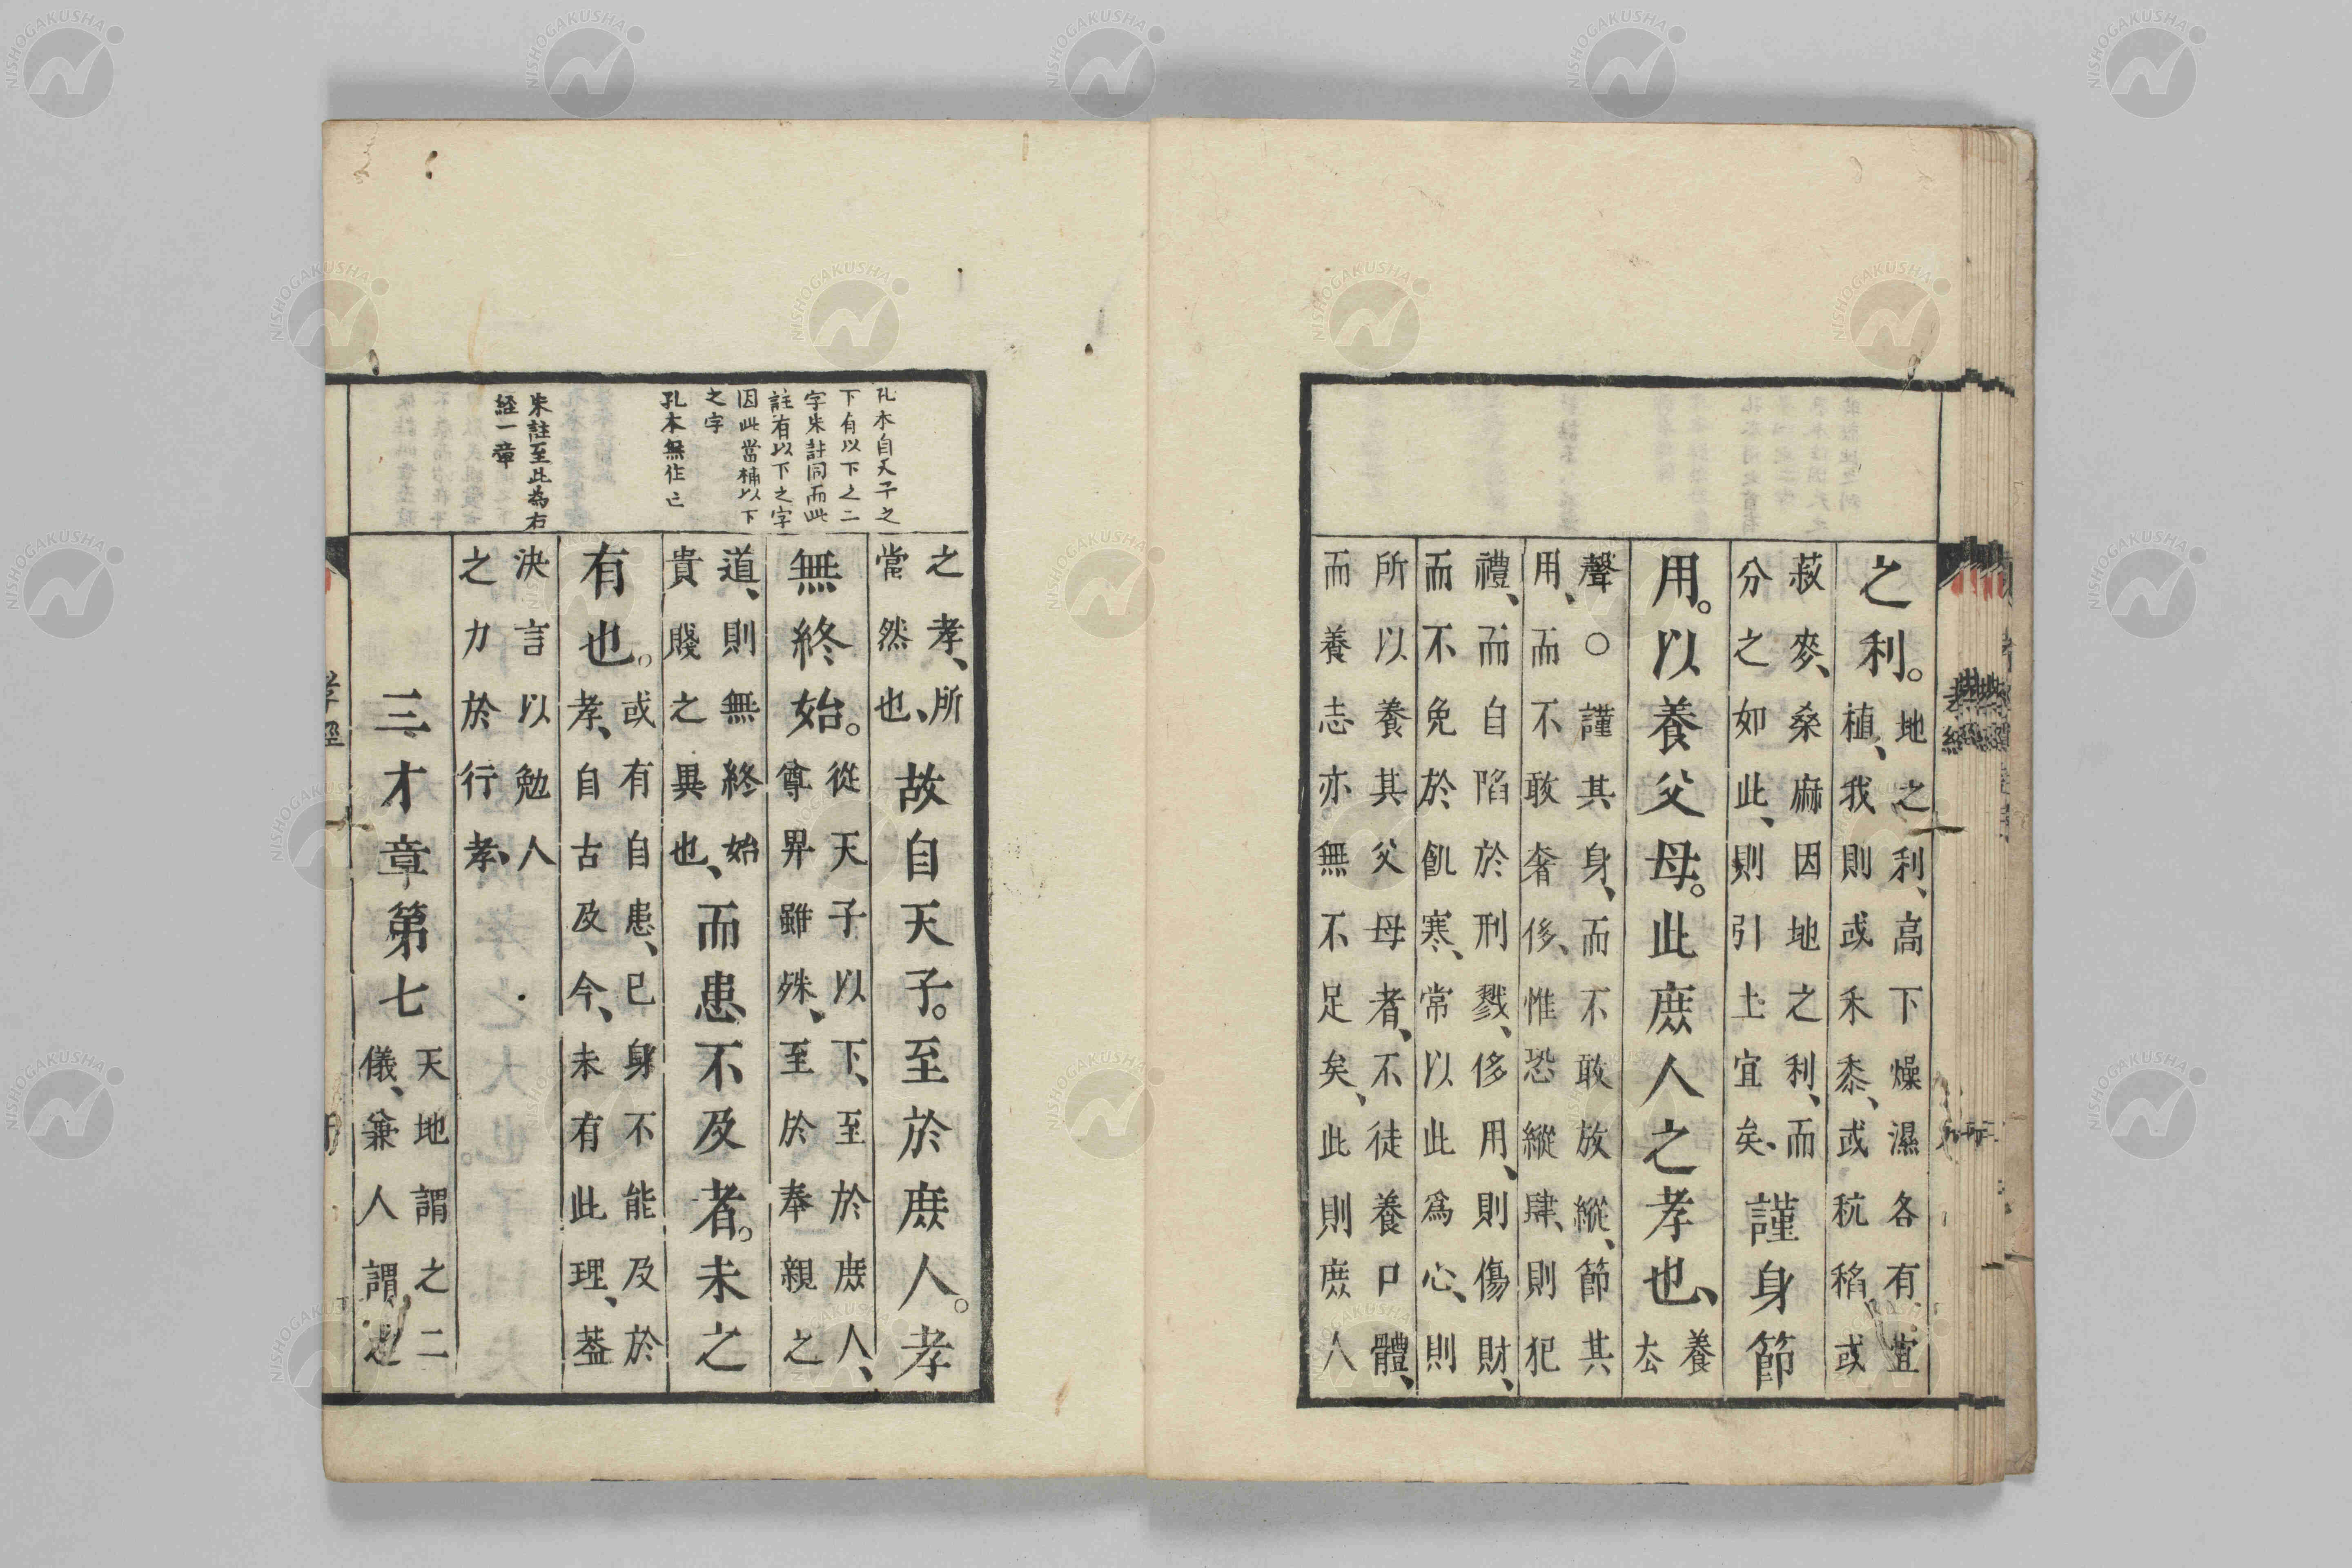 之利。地之利、高下燥濕各有宜
植、我則或禾黍、或秔稻、或
菽麥、桑麻因地之利、而
分之如此、則引土宜矣、謹身節
用。以養父母。此庶人之孝也、養
去
聲○謹其身、而不敢放縱、節其
用、而不敢奢侈、惟恐縱肆、則犯
禮、而自陷於刑戮、侈用、則傷財、
而不免於飢寒、常以此爲心、則
所以養其父母者、不徒養口體、
而養志亦無不足矣、此則庶人
孔本自天子之
下有以下之二
字朱註同而此
註有以下之字
因此當補以下
之字
孔本無作已
朱註至此為右
経一章
之孝、所
當然也、故自天子。至於庶人。孝
無終始。從天子以下、至於庶人、
尊畀雖殊、至於奉親之
道、則無終始
貴賤之異也、而患不及者。未之
有也。或有自患、已身不能及於
孝、自古及今、未有此理、蓋
決言以勉人
之力於行孝、
三才章第七天地謂之二
儀、兼人謂之
孝經
十